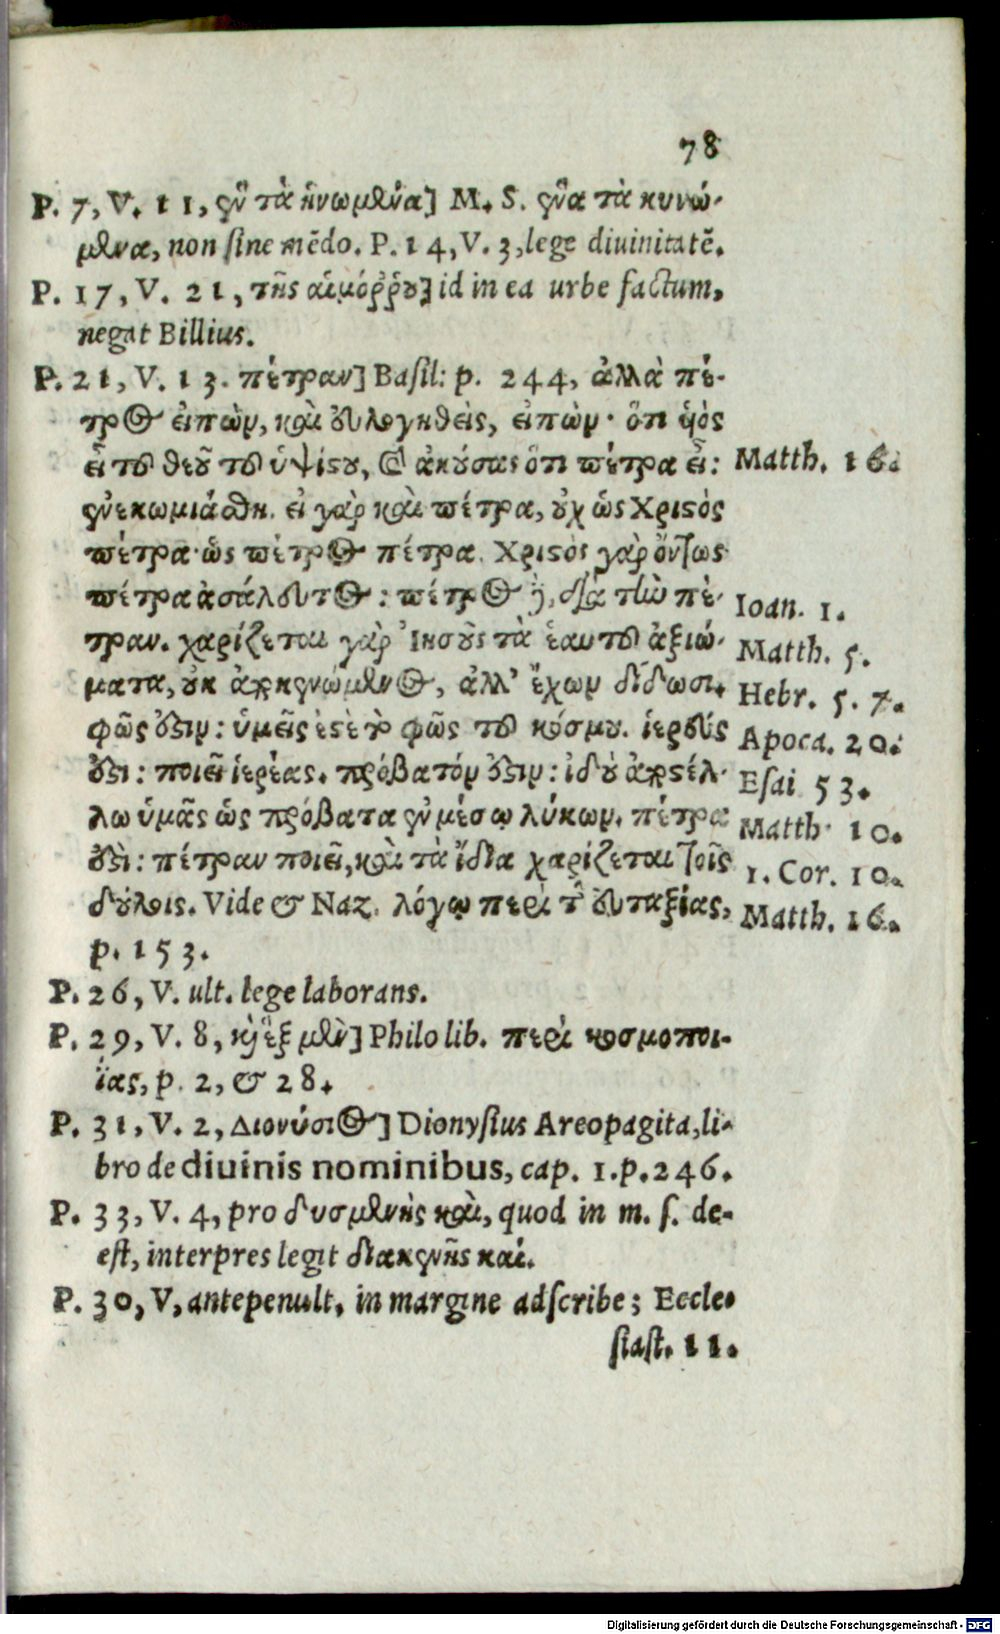 78
P. 7, V. 11, ἐν τὰ ἡνωμένα] M. S. ἕνα τὰ κινώ-
μενα, non ſine mēdo. P. 14, V. 3, lege diuinitatē.
P. 17, V. 21, τῆς αἱμόῤῥου] id in ea urbe factum,
negat Billius.
P. 21, V. 13. πέτραν] Baſil: p. 244, ἀλλὰ πέ-
τρος εἰπὼν, καὶ εὐλογηθεὶς, εἰπὼν· ὅτι υἱὸς
εἶ τοῦ θεοῦ τοῦ ὑψίστου, καὶ ἀκούσας ὅτι πέτρα εἶ:
ἐνεκωμιάσθη. εἰ γὰρ καὶ πέτρα, οὐχ ὡς Χριστὸς
πέτρα· ὡς πέτρος πέτρα. Χριστὸς γὰρ ὄντως
πέτρα ἀσάλευτος: πέτρος δὲ, διὰ τὴν πέ-
τραν. χαρίζεται γὰρ Ἰησοῦς τὰ ἑαυτοῦ ἀξιώ-
ματα, οὐκ ἀποκενώμενος, ἀλλ' ἔχων δίδωσι.
φῶς ἐστιν: ὑμεῖς ἐστὲ τὸ φῶς τοῦ κόσμου. ἱερεύς
ἐστι: ποιεῖ ἱερέας. πρόβατόν ἐστιν: ἰδοὺ ἀποστέλ-
λω ὑμᾶς ὡς πρόβατα ἐν μέσῳ λύκων. πέτρα
ἐστὶ: πέτραν ποιεῖ, καὶ τὰ ἴδια χαρίζεται τοῖς
δούλοις. Vide & Naz. λόγῳ περὶ τῆς εὐταξίας,
p. 153.
Matth. 16.
Ioan. 1.
Matth. 5.
Hebr. 5. 7.
Apoca. 20.
Eſai 53.
Matth. 10.
1. Cor. 10.
Matth. 16.
P. 26, V. ult. lege laborans.
P. 29, V. 8, καὶ ἓξ μὲν] Philo lib. περὶ κοσμοποι-
ΐας, p. 2, & 28.
P. 31, V. 2, Διονύσιος] Dionyſius Areopagita, li-
bro de diuinis nominibus, cap. 1. p. 246.
P. 33, V. 4, pro δυσμενὴς καὶ, quod in m. ſ. de-
eſt, interpres legit διακενῆς καί.
P. 30, V, antepenult. in margine adſcribe; Eccle-
ſiaſt. 11.
Digitalisierung gefördert durch die Deutsche Forschungsgemeinschaft - DFG